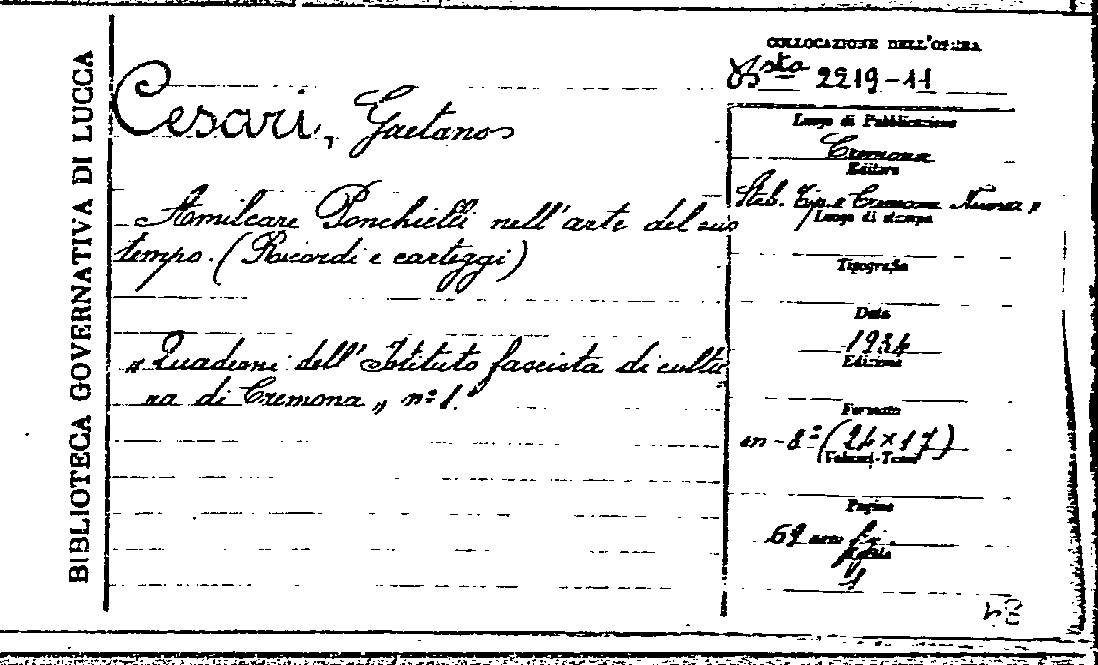 BIBLIOTECA GOVERNATIVA DI LUCCA
COLLOCAZIONE DELL'OPERA
Bsta 2219-11
Cesari, Gaetano
Amilcare Ponchielli nell'arte del suo
tempo. (Ricordi e carteggi)
"Quaderni dell'Istituto fascista di cultu
ra di Cremona" n° 1.
Luogo di Pubblicazione
Cremona
Editore
Stab. Tip. Cremona Nuova
Luogo di stampa
Tipografia
Data
1934
Edizione
Formato
in-8° (24×17)
Volumi-Tomi
Pagine
69